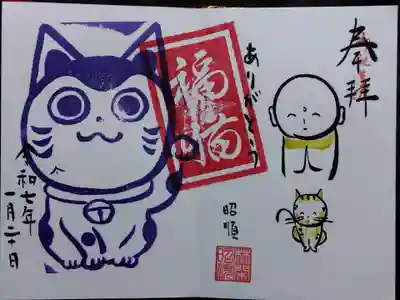 奉拝
ありがとう
福猫
昭順
令和七年
一月二十日